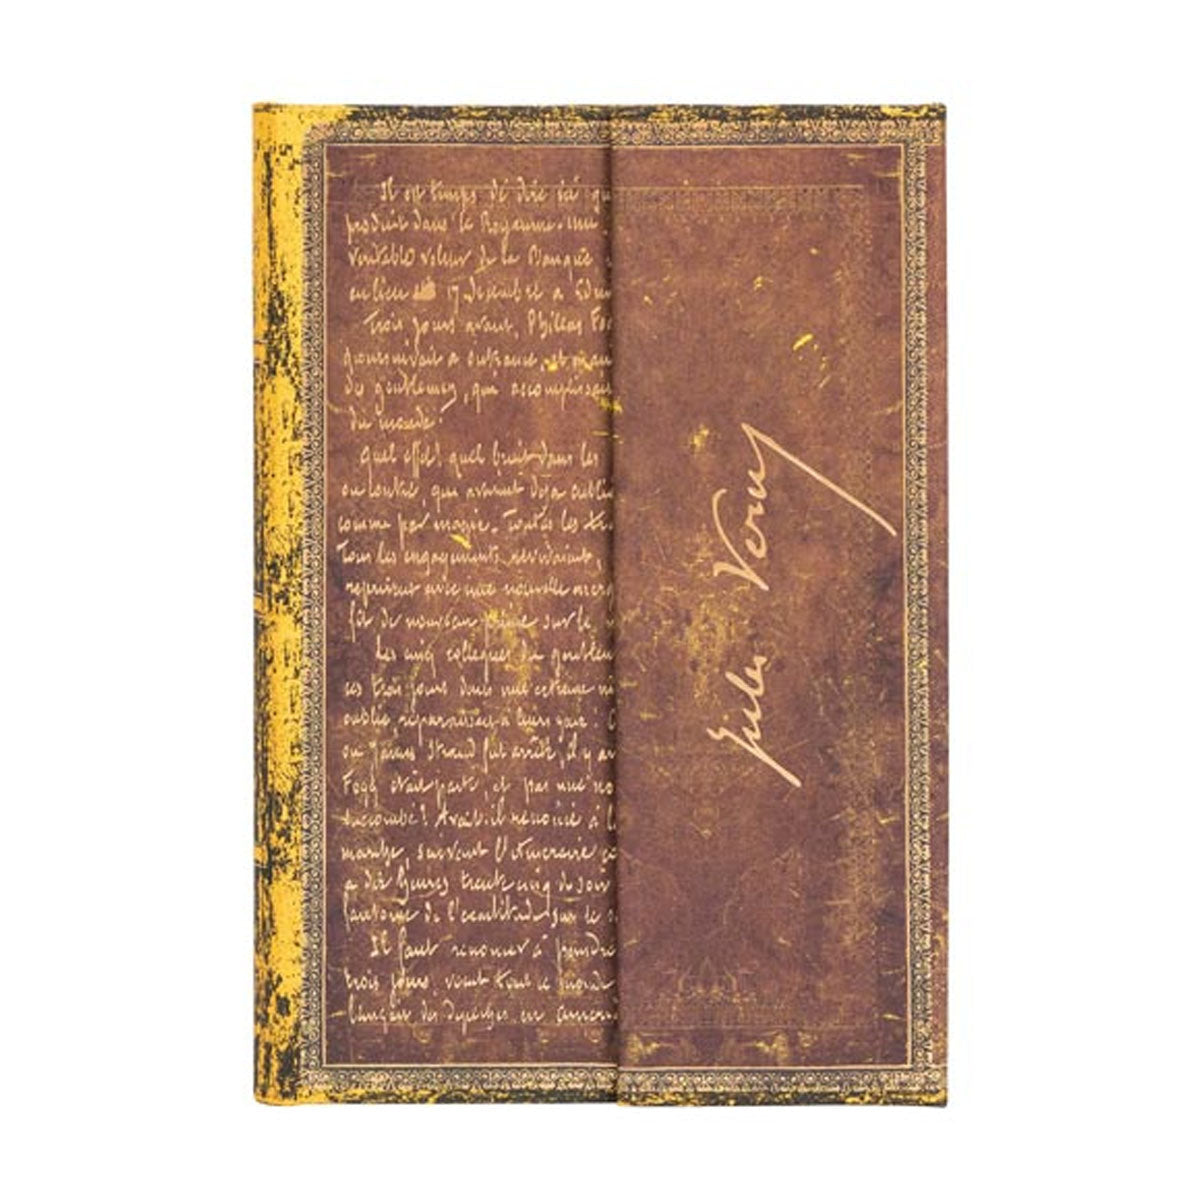 Il est temps de dire ici qu
produit dans le Royaume-uni
veritable voleur de la Banque
eu lieu 17 Decembre a Edim
Trois jours avant, Phileas Fo
poursuivait a outrance, et
des gentlemen, qui accomplissai
du monde!
Quel effet, quel bruit dans les
ou contre, qui avaient deja oublié
comme par magie. Toutes les tr
Tous les engagements revivaient,
reprirent avec une nouvelle
fit de nouveau prime sur le
Les cinq collegues du gentlem
ces trois jours dans une certaine
oublié, reparaissait à leurs yeux!
ou James Strand fut arrêté, il y av
Fogg était parti, et pas une no
succombé? Avait-il renoncé à l
marche, suivant l'itineraire
a dix heures trente cinq du soir
fantome de l'exactitude, sur le s
Il faut renoncer à peindre
trois jours, vécut tout ce monde
lançait des depeches en
Jules Verne